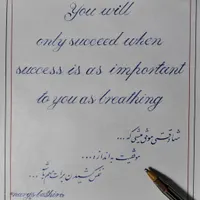 You will
only succeed when
success is as important
to you as breathing
شما وقتی موفق میشی که...
موفقیت به اندازه...
نفس کشیدن برات مهم باشه...